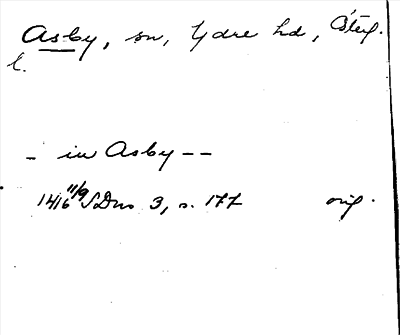 Asby, sn, Ydre hd, Östg.
l.
- in Asby --
1416 11/9 SDns 3, s. 177 orig.